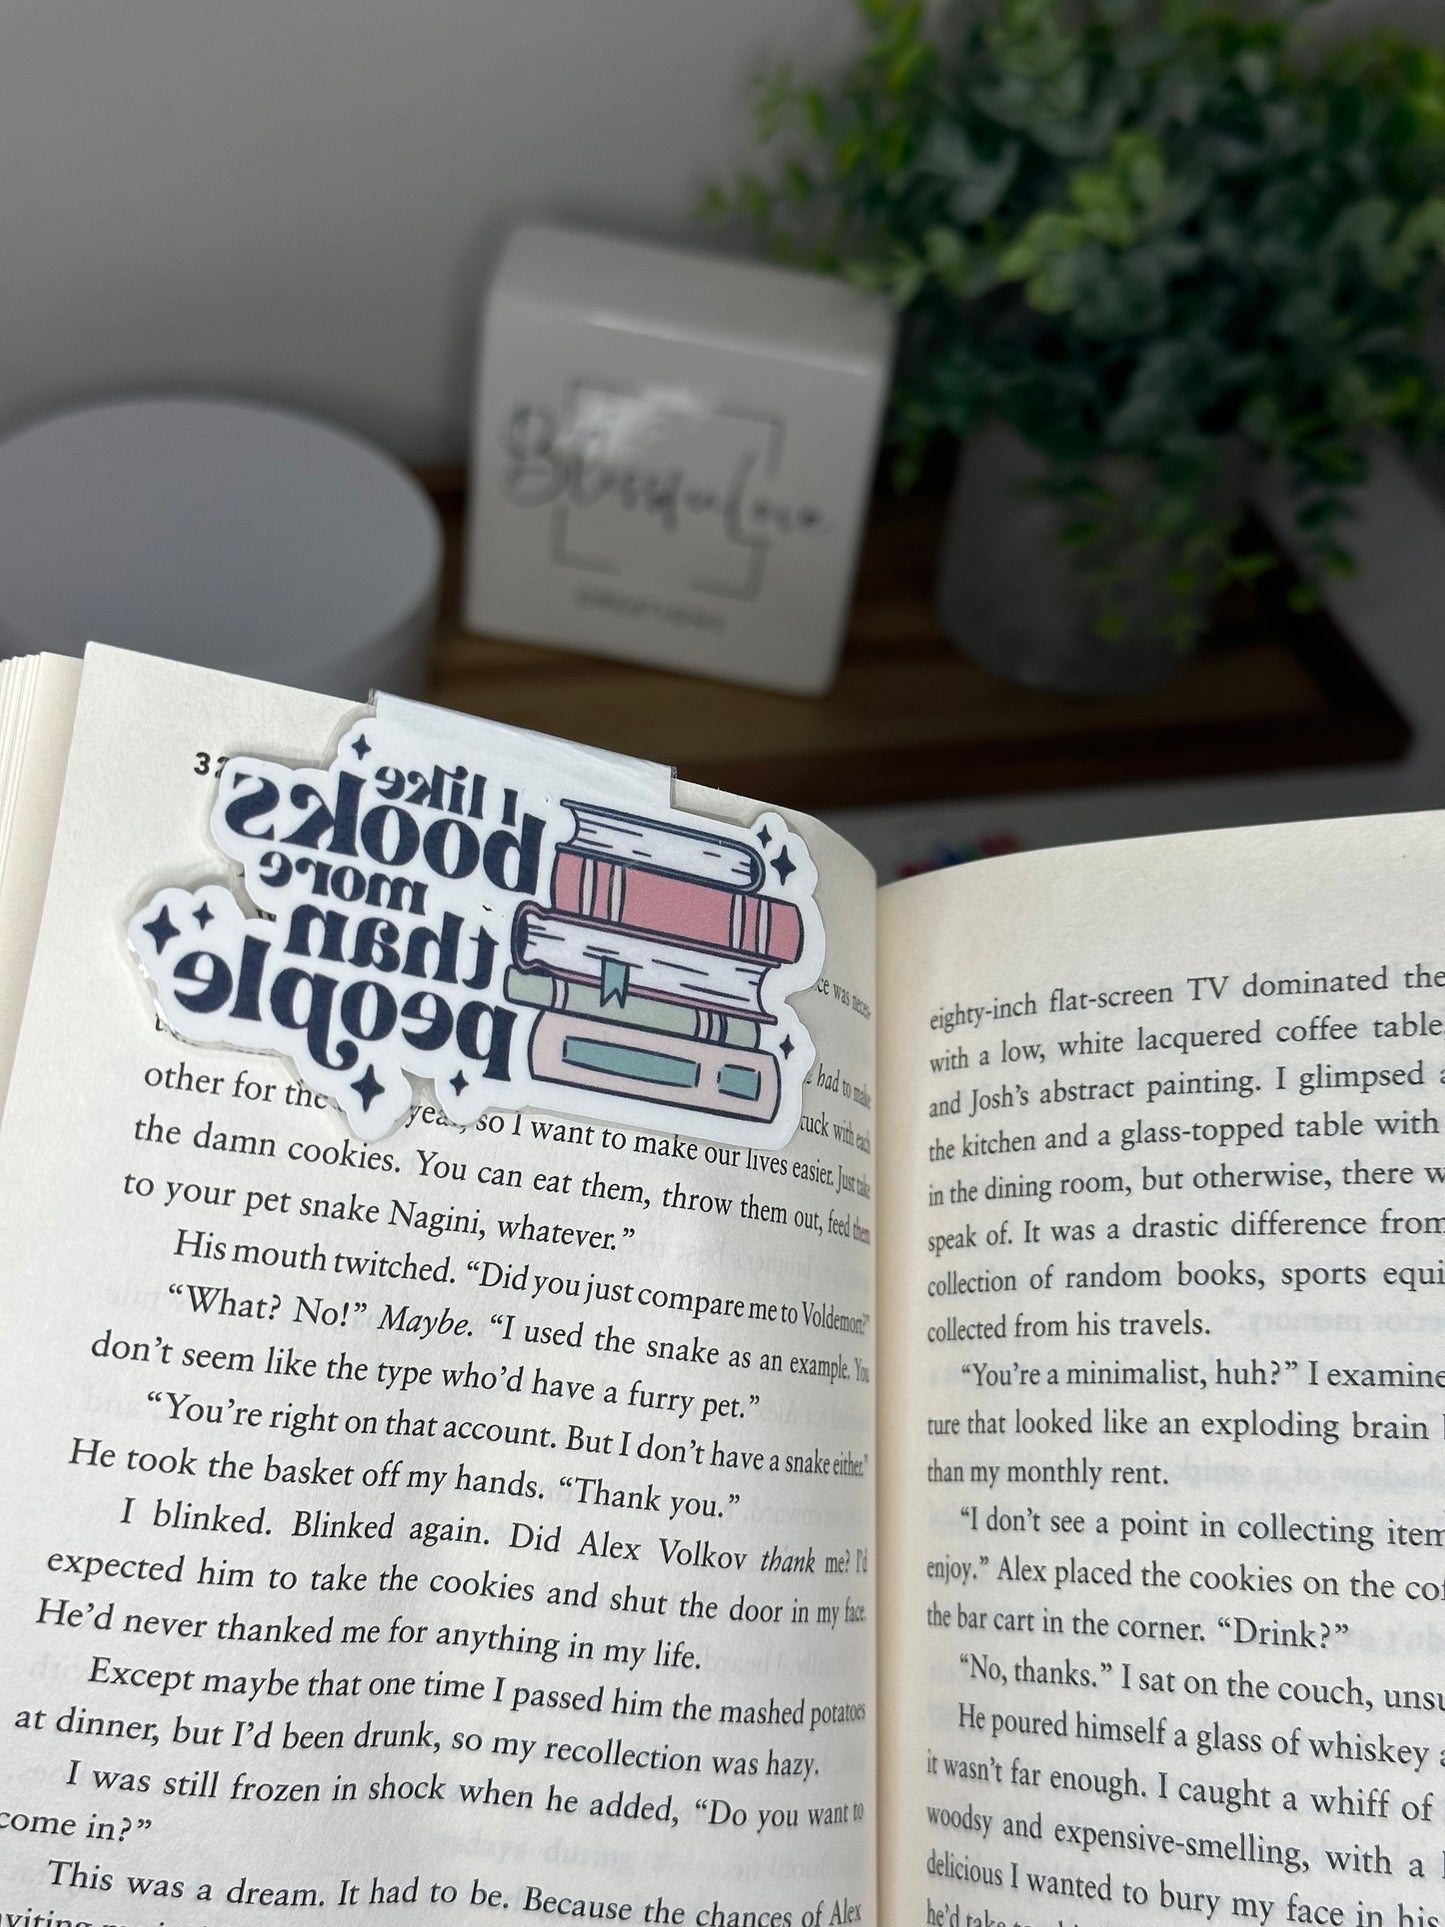 I like
books
more
than
people
other for the year, so I want to make our lives easier. Just take
the damn cookies. You can eat them, throw them out, feed them
to your pet snake Nagini, whatever.”
His mouth twitched. “Did you just compare me to Voldemort?”
“What? No!” Maybe. “I used the snake as an example. You
don’t seem like the type who’d have a furry pet.”
“You’re right on that account. But I don’t have a snake either.”
He took the basket off my hands. “Thank you.”
I blinked. Blinked again. Did Alex Volkov thank me? I’d
expected him to take the cookies and shut the door in my face.
He’d never thanked me for anything in my life.
Except maybe that one time I passed him the mashed potatoes
at dinner, but I’d been drunk, so my recollection was hazy.
I was still frozen in shock when he added, “Do you want to
come in?”
This was a dream. It had to be. Because the chances of Alex
eighty-inch flat-screen TV dominated the
with a low, white lacquered coffee table
and Josh’s abstract painting. I glimpsed
the kitchen and a glass-topped table with
in the dining room, but otherwise, there
speak of. It was a drastic difference from
collection of random books, sports
collected from his travels.
“You’re a minimalist, huh?” I
ture that looked like an exploding brain
than my monthly rent.
“I don’t see a point in collecting
enjoy.” Alex placed the cookies on the
the bar cart in the corner. “Drink?”
“No, thanks.” I sat on the couch,
He poured himself a glass of whiskey
it wasn’t far enough. I caught a whiff of
woodsy and expensive-smelling, with a
delicious I wanted to bury my face in his
he’d